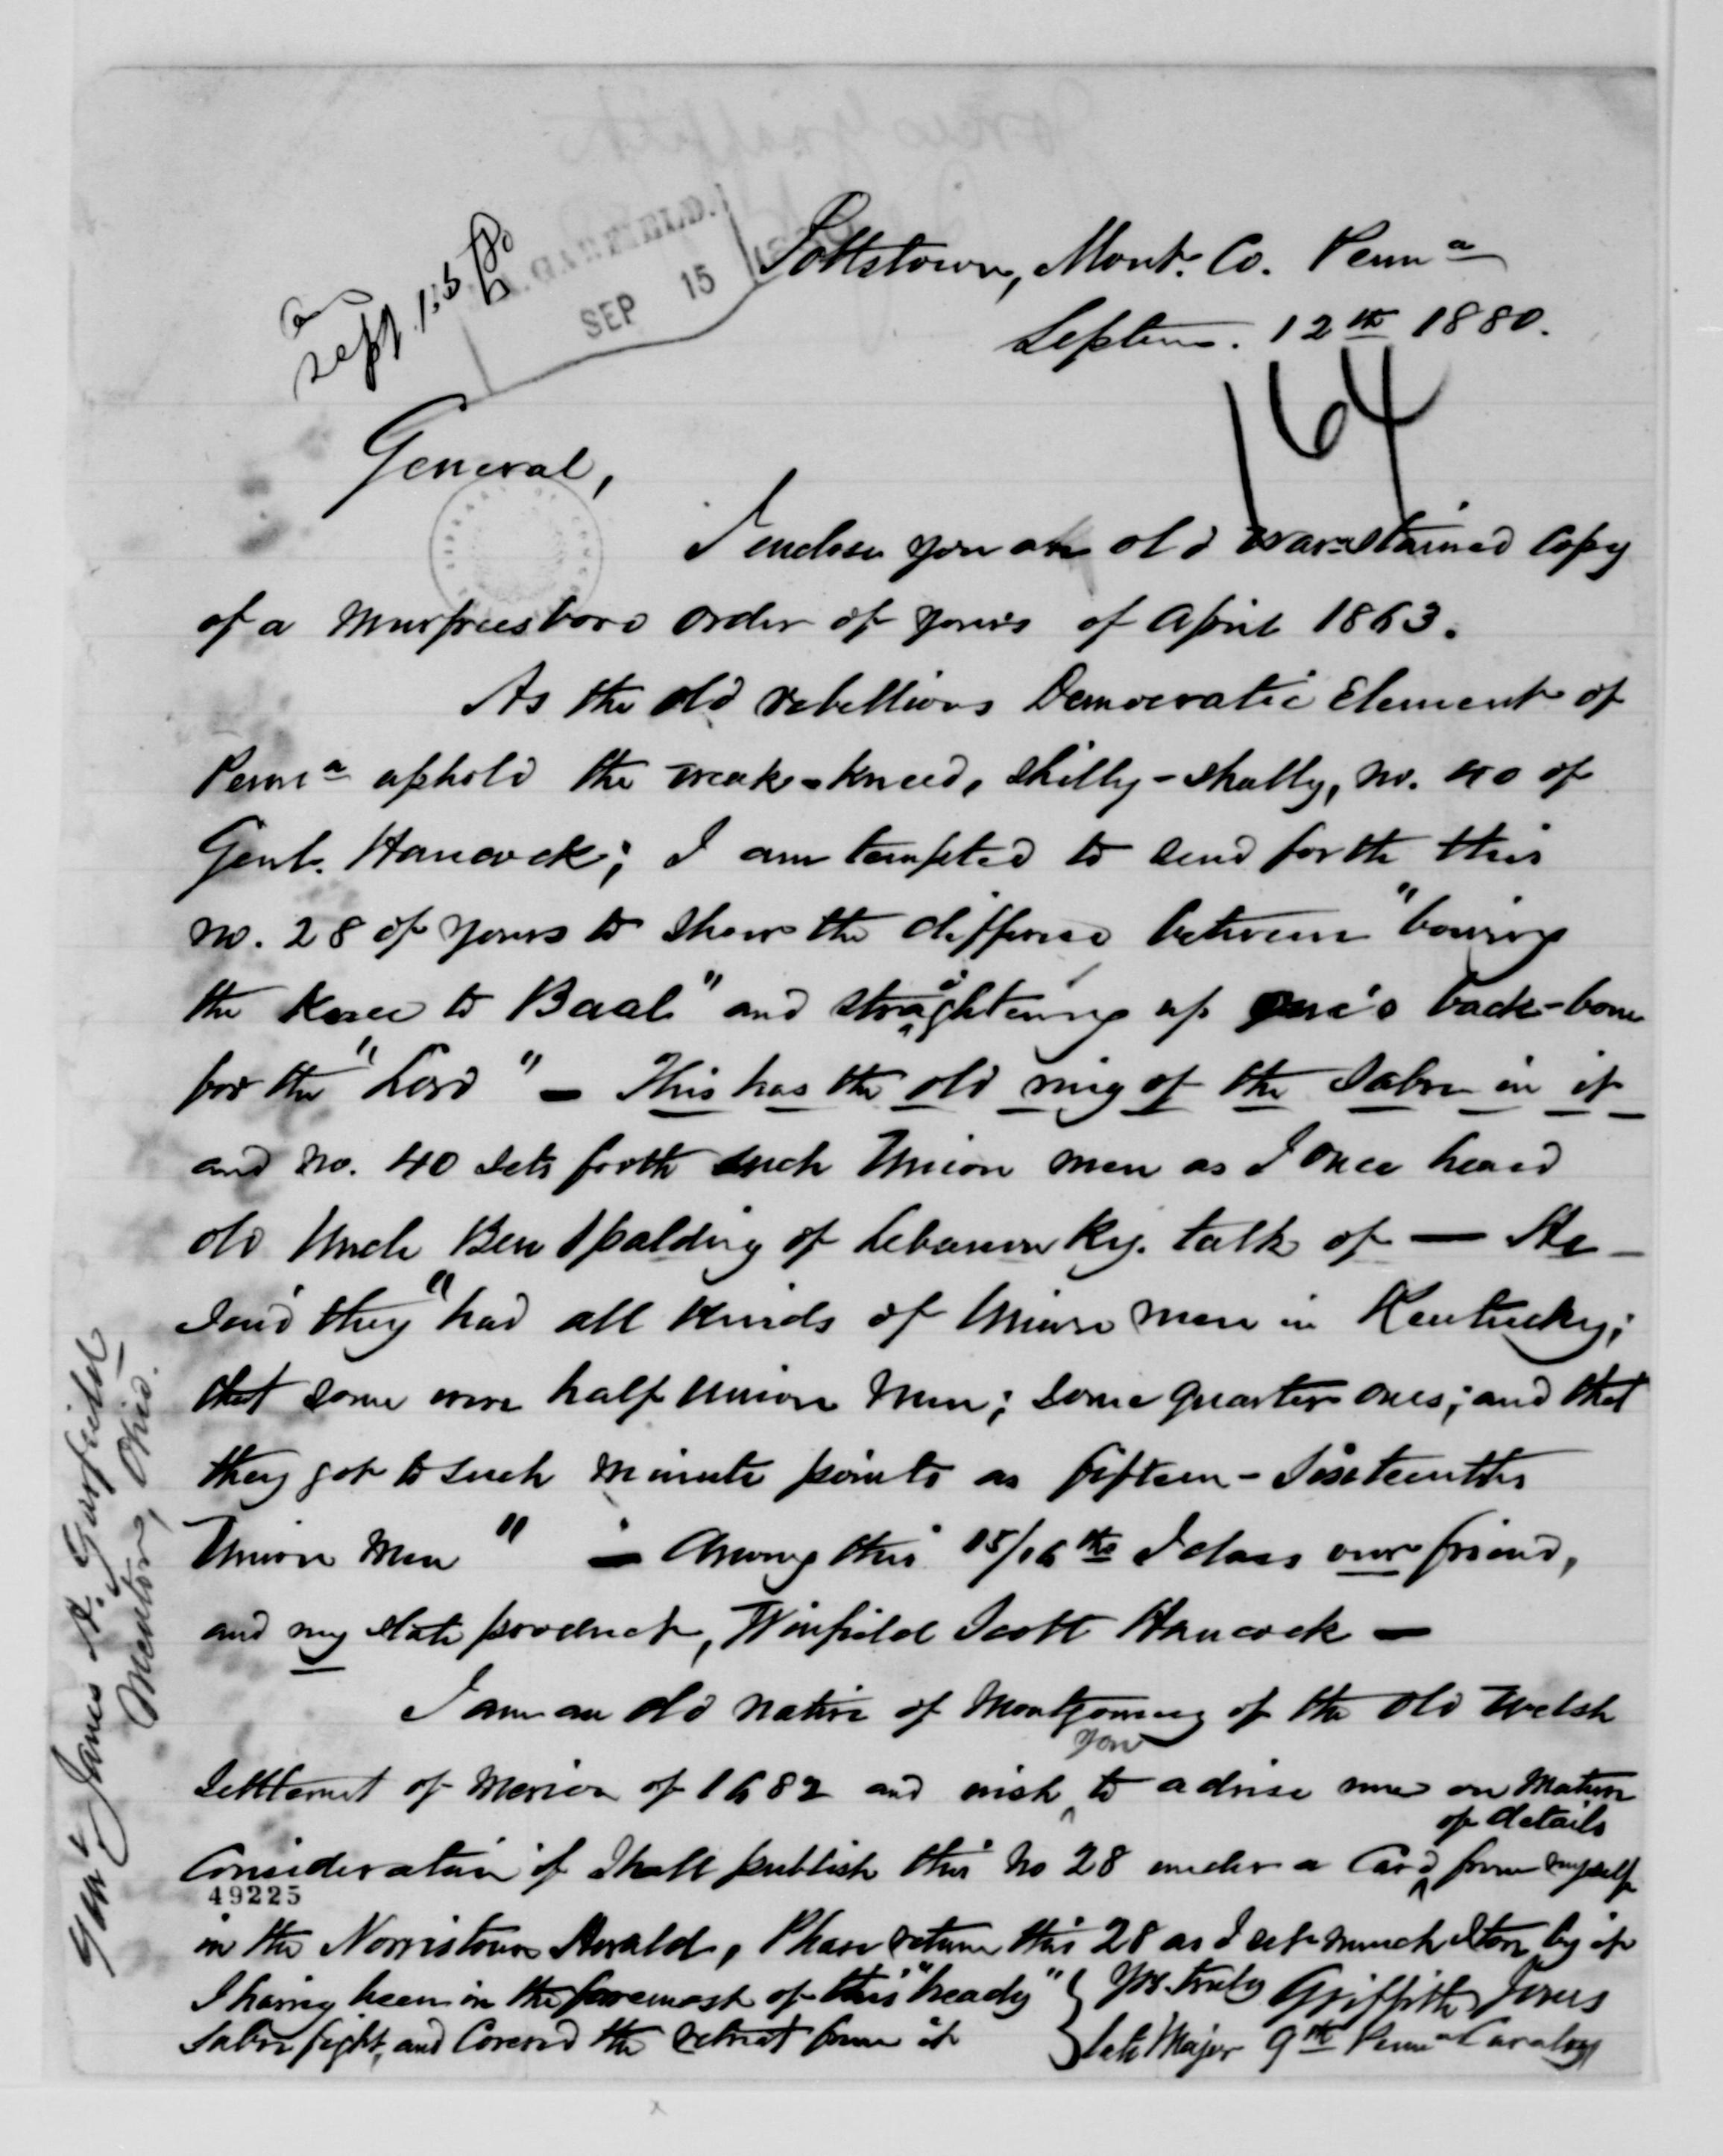 an
Sept. 15/80
J. A. GARFIELD.
SEP 15 1880
Pottstown, Mont. Co. Penna
Septem. 12th 1880.
164
General,
I enclose you an old war-stained copy
of a Murfreesboro order of yours of April 1863.
As the old rebellious Democratic Element of
Penna uphold the weak-kneed, shilly-shally, No. 40 of
Genl. Hancock; I am tempted to send forth this
No. 28 of yours to show the difference between "bowing
the knee to Baal" and straightening up one's back-bone
for the "Lord" — This has the old ring of the Sabre in it
and No. 40 sets forth such Union men as I once heard
old Uncle Ben Spalding of Lebanon Ky. talk of — He
said they "had all kinds of Union men in Kentucky;
that some were half Union Men; some quarter ones; and that
they got to such minute points as fifteen-sixteenths
Union Men" — Among this 15/16ths I class our friend,
and my state product, Winfield Scott Hancock —
I am an old native of Montgomery of the old Welsh
you
Settlement of Merion of 1682 and wish to advise me on Mature
of details
Consideration if I shall publish this No 28 under a Card from myself
49225
in the Norristown Herald, Please return this 28 as I set much store by it
I having been in the foremost of this "heady"
Sabre fight, and Covered the retreat from it
Yrs. truly Griffith Jones
late Major 9th Penna Cavalry
Genl James A. Garfield
Mentor, Ohio.